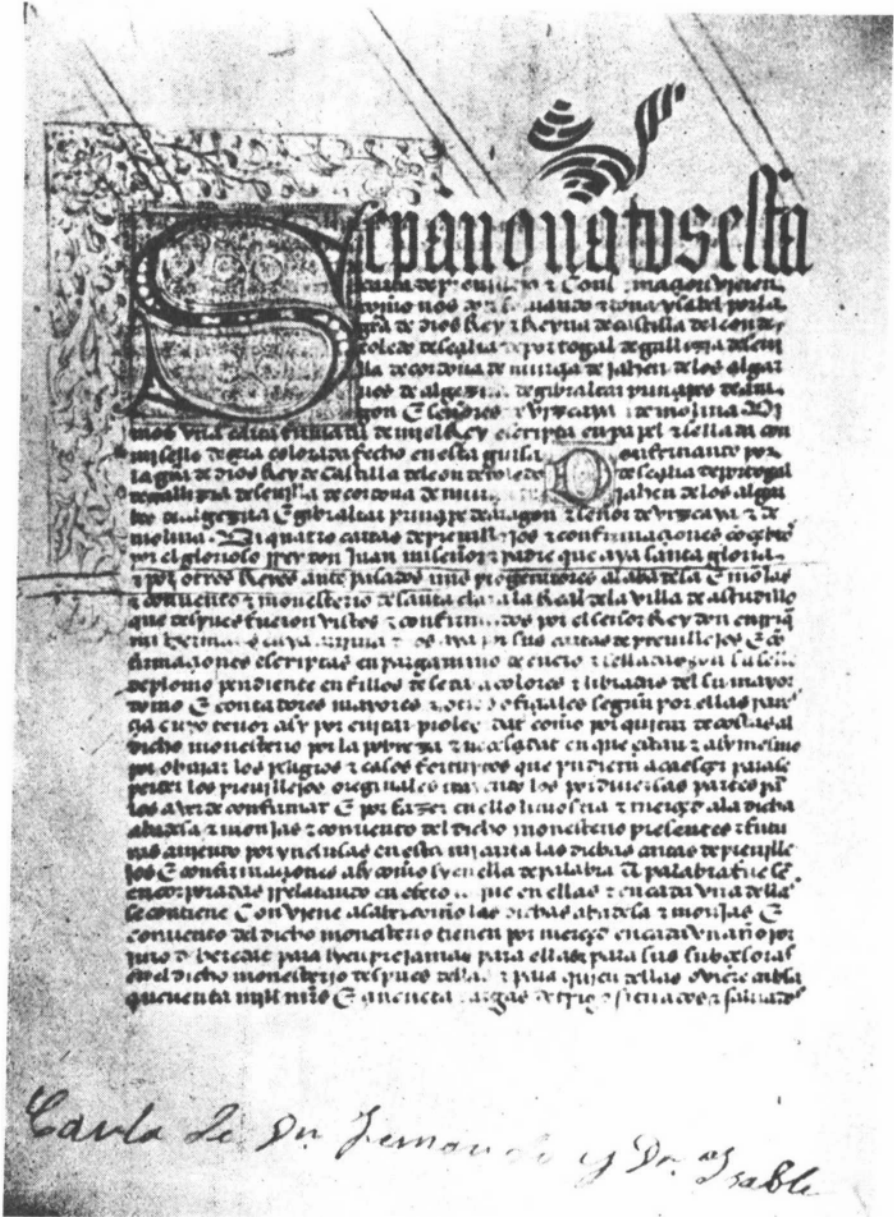 Sepan quantos esta
carta de preuillejo & Confirmaçion vieren
como nos don fernando & dona ysabel por la
gr̃a de dios Rey & Reyna de castilla de leon de
toledo de seçilia de portogal de gallizia de seui
lla de cordoua de murçia de jahen de los algar
ues de algezira de gibraltar prinçipes de ara
gon & señores de vizcaya & de molina Vi
mos vna carta firmada de mi el Rey escripta en papel & sellada con
mi sello de çera colorada fecho en esta guisa Don fernando por
la gr̃a de dios Rey de Castilla de leon de toledo de seçilia de portogal
de gallizia de seuilla de cordoua de murçia de jahen de los algar
bes de algezira & gibraltar prinçipe de aragon & señor de vizcaya & de
molina Vi quatro cartas de preuillejos & confirmaçiones
por el glorioso Rey don Juan mi señor & padre que aya santa gloria
& por otros Reyes ante pasados mis progenitores al abadesa & monjas
& conuento & monesterio de santa clara la Real de la villa de astudillo
que despues fueron vistos & confirmados por el señor Rey don enriq̃
mi hermano cuya anima dios aya por sus cartas de preuillejos & cõ
firmaçiones escriptas en pargamino de cuero & selladas con su sello
de plomo pendiente en fillos de seda a colores & libradas del su mayor
domo & contadores mayores & otros ofiçiales segun por ellas pares
çia cuyo tenor asy por euitar prolexidat como por quitar de costas al
dicho monesterio por la pobreza & neçesydat en que estan & asy mesmo
por obuiar los peligros & casos fortuytos que pudierã acaesçer para se
perder los preuillejos oreginales trayendo los por diuersas partes pa
los aver de confirmar & por fazer en ello limosna & merçed a la dicha
abadesa & monjas & conuento del dicho monesterio presentes & futu
ras auiendo por ynclusas en esta mi carta las dichas cartas de preuille
jos & confirmaçiones asy como sy en ella de palabra a palabra fuesẽ
encorporadas rrelatando en efeto lo que en ellas & en cada vna dellas
se contiene Conviene a saber como las dichas abadesa & monjas &
conuento del dicho monesterio tienen por merçed en cada vn año por
juro de heredat para syempre jamas para ellas & para sus subçesoras
en el dicho monesterio despues dellas & para quien dellas oviere cabsa
quarenta mill mr̃s & çincuenta cargas de trigo situados & saluados
Carta de Dn. Fernando y Dn. Isable